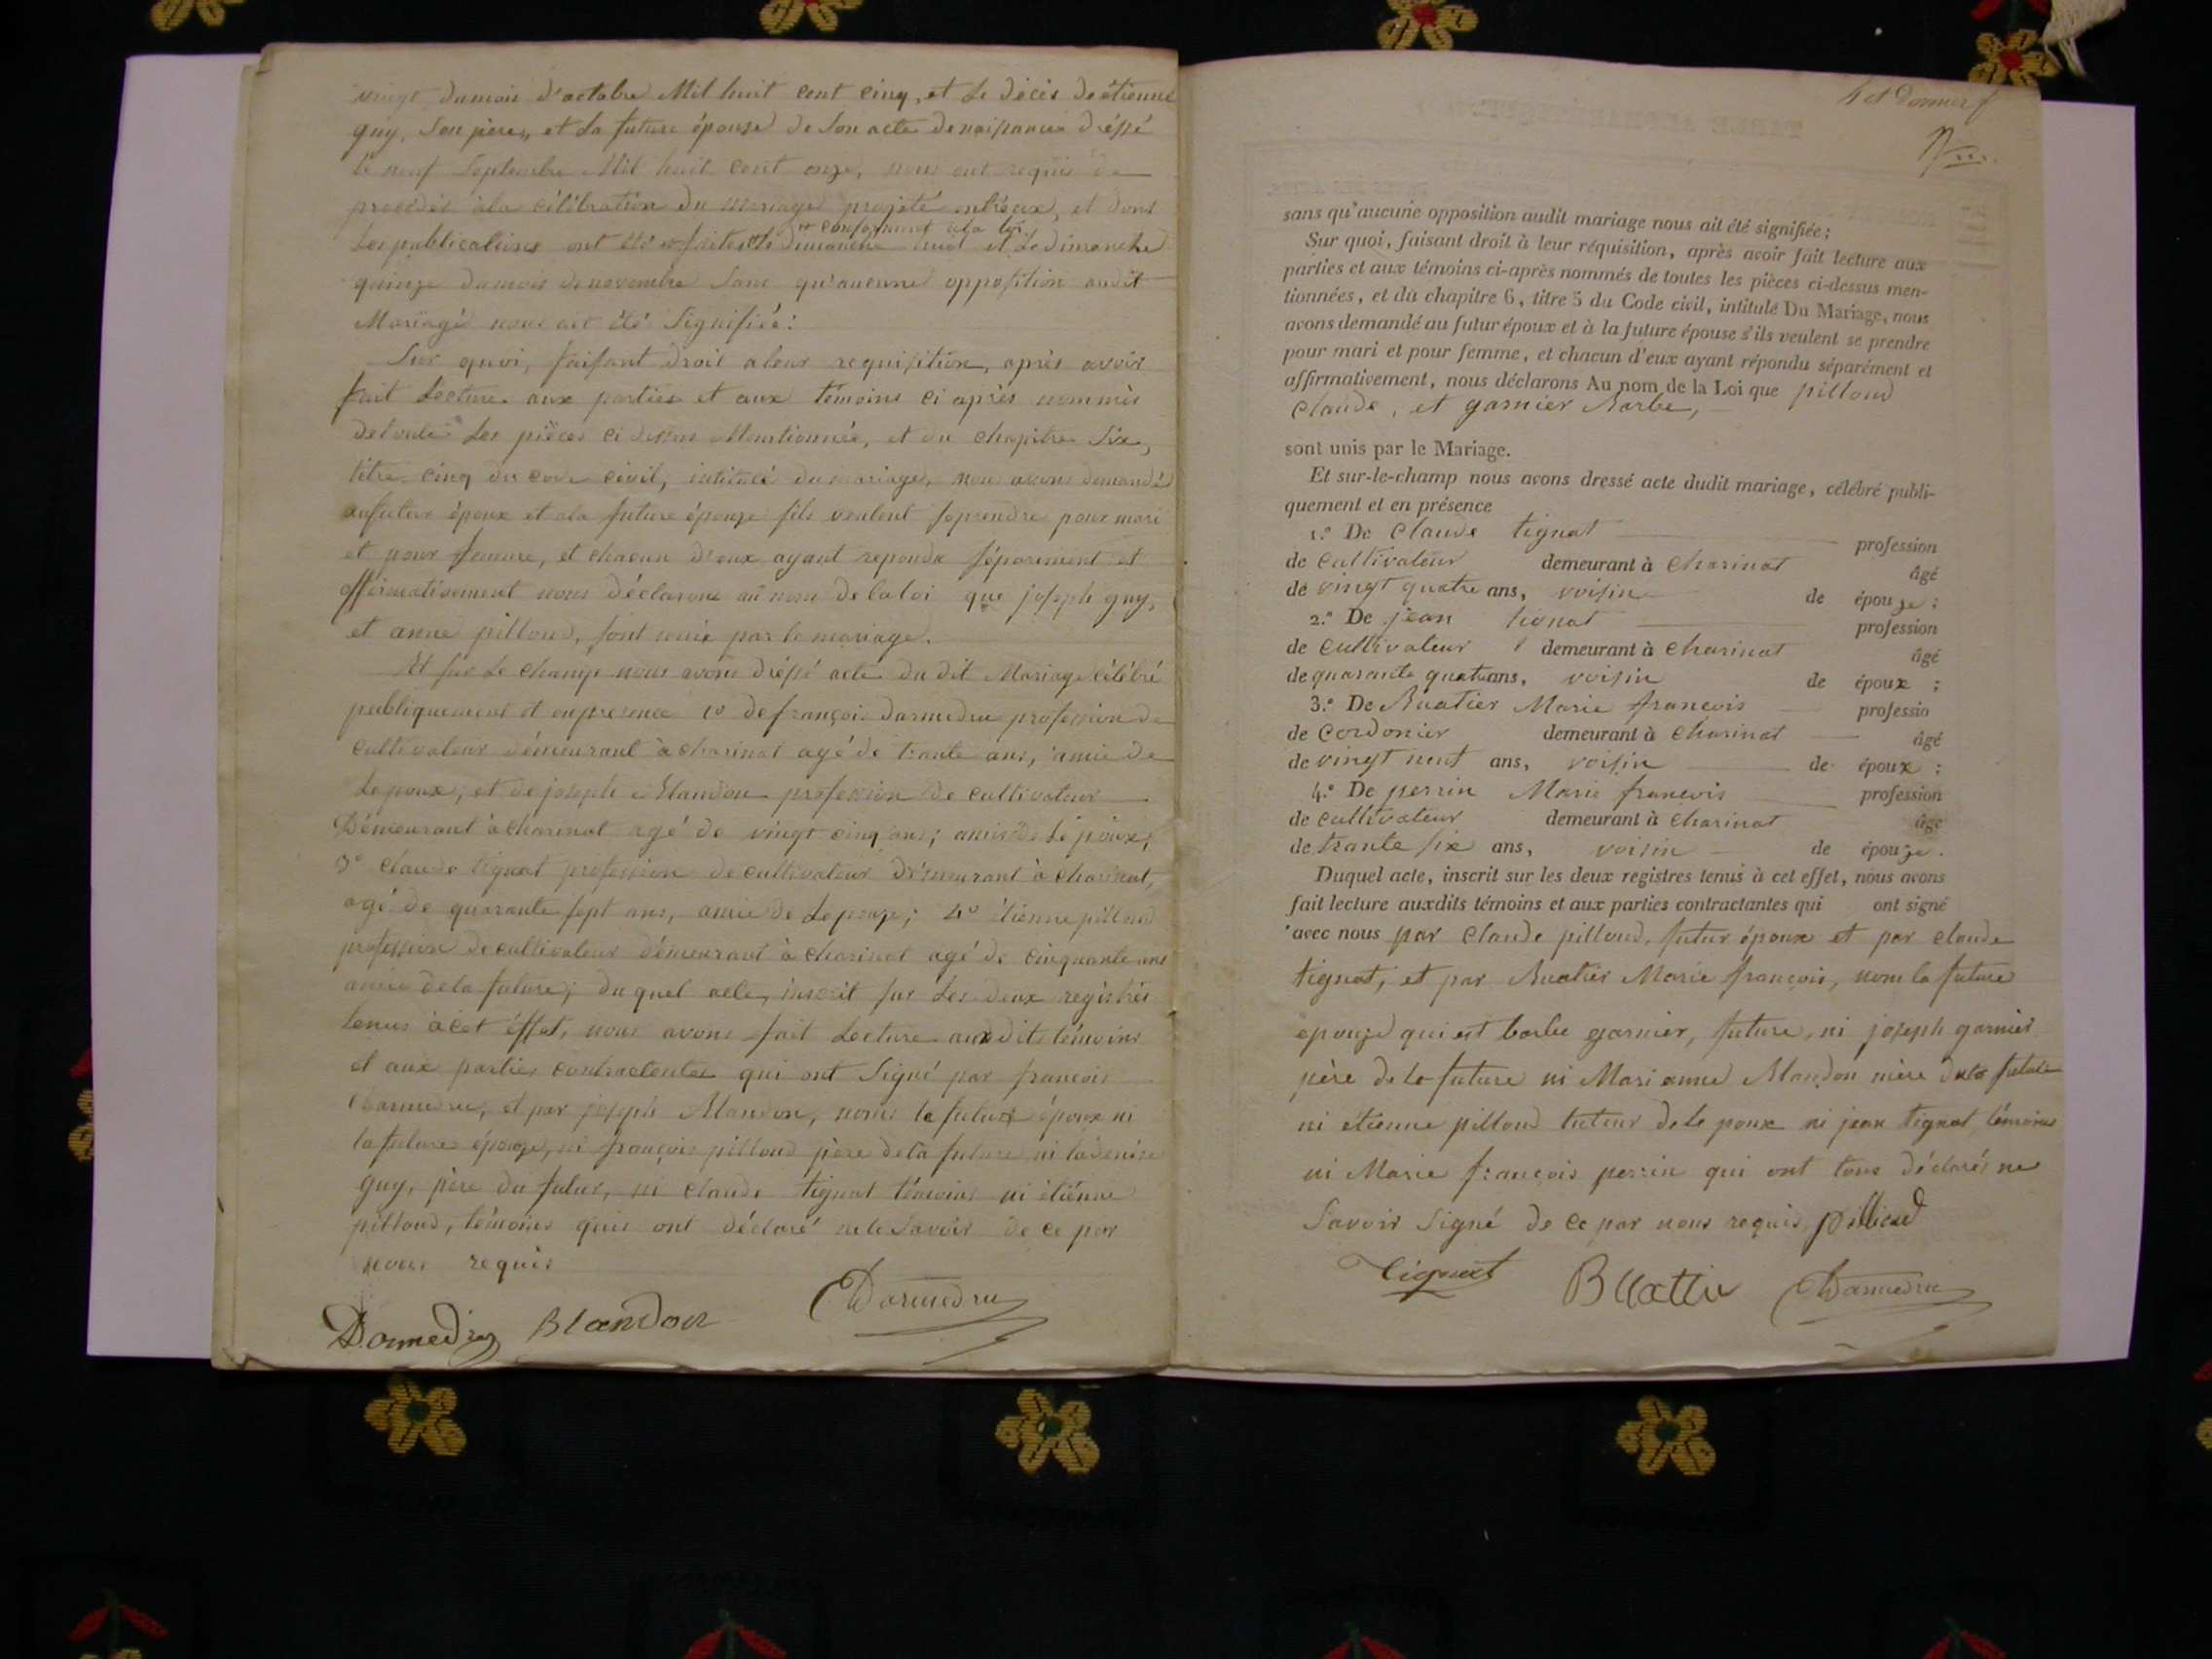 vingt du mois d'octobre Mil huit cent cinq, et le décès de étienne
guy, son père, et la future épouse de son acte de naissance dréssé
le neuf septembre Mil huit cent onze, nous ont requis de
procéder à la célébration du mariage projeté entr'eux, et dont
conformement a la loi
les publications ont été faites le dimanche huit et le dimanche
quinze du mois de novembre sans qu'aucune opposition audit
Mariage nous ait été signifiée:
Sur quoi, faisant droit a leur requisition, après avoir
fait lecture aux parties et aux témoins ci après nommés
de toute les pièces ci dessus Mentionnée, et du chapitre six,
titre cinq du code civil, intitulé du mariage, nous avons demandé
au futur époux et a la future épouze s'ils veulent se prendre pour mari
et pour femme, et chacun d'eux ayant repondu séparement et
affirmativement nous déclarons au nom de la loi que joseph guy,
et anne pilloud, sont unis par le mariage.
Et sur le champ nous avons dréssé acte du dit Mariage célébré
publiquement et en presence 1º de françois darmedru profession de
cultivateur démeurant à charinat agé de trante ans, amie de
lepoux, et de joseph Blandon profession de cultivateur
Démeurant à charinat agé de vingt cinq ans; amis de lépoux;
3º claude tignat profession de cultivateur démeurant à charinat,
agé de quarante sept ans, amie de lepouze; 4º étienne pilloud
profession de cultivateur démeurant à charinat agé de cinquante ans
amie de la future; du quel acte, inscrit sur les deux registres
tenus à cet éffet, nous avons fait lecture aux dits témoins
et aux parties contractentes qui ont signé par françois
Darmedru, et par joseph Blandon, nome le future époux ni
la future épouze, ni françois pilloud père de la future ni
guy, père du futur, ni claude tignat témoins ni étiénne
pilloud, témoins quis ont déclaré ne le savoir de ce par
nous requis
Darmedru Blandon CDarmedru
sans qu'aucune opposition audit mariage nous ait été signifiée;
Sur quoi, faisant droit à leur réquisition, après avoir fait lecture aux
parties et aux témoins ci-après nommés de toutes les pièces ci-dessus men-
tionnées, et du chapitre 6, titre 5 du Code civil, intitulé Du Mariage, nous
avons demandé au futur époux et à la future épouse s'ils veulent se prendre
pour mari et pour femme, et chacun d'eux ayant répondu séparément et
affirmativement, nous déclarons Au nom de la Loi que pilloud
claude, et garnier Barbe,
sont unis par le Mariage.
Et sur-le-champ nous avons dressé acte dudit mariage, célébré publi-
quement et en présence
1.º De Claude tignat profession
de cultivateur demeurant à charinat âgé
de vingt quatre ans, voisin de épouze;
2.º De jean tignat profession
de cultivateur demeurant à charinat âgé
de quarante quatre ans, voisin de époux;
3.º De Buatier Marie francois professio
de cordonier demeurant à charinat âgé
de vingt neuf ans, voisin de époux;
4.º De perrin Marie francois profession
de cultivateur demeurant à charinat âgé
de trante six ans, voisin de épouze.
Duquel acte, inscrit sur les deux registres tenus à cet effet, nous avons
fait lecture auxdits témoins et aux parties contractantes qui ont signé
avec nous par claude pilloud, futur époux et par claude
tignat; et par Buatier Marie françois, nom la future
épouze qui est barbe garnier, future, ni joseph garnier
père de la future ni Marianne Blandon mère de la future
ni étienne pilloud tuteur de le poux ni jean tignat, témoins
ni Marie françois perrin qui ont tous déclarés ne
savoir signé de ce par nous requis pilloud
Tignat Buattie CDarmedru